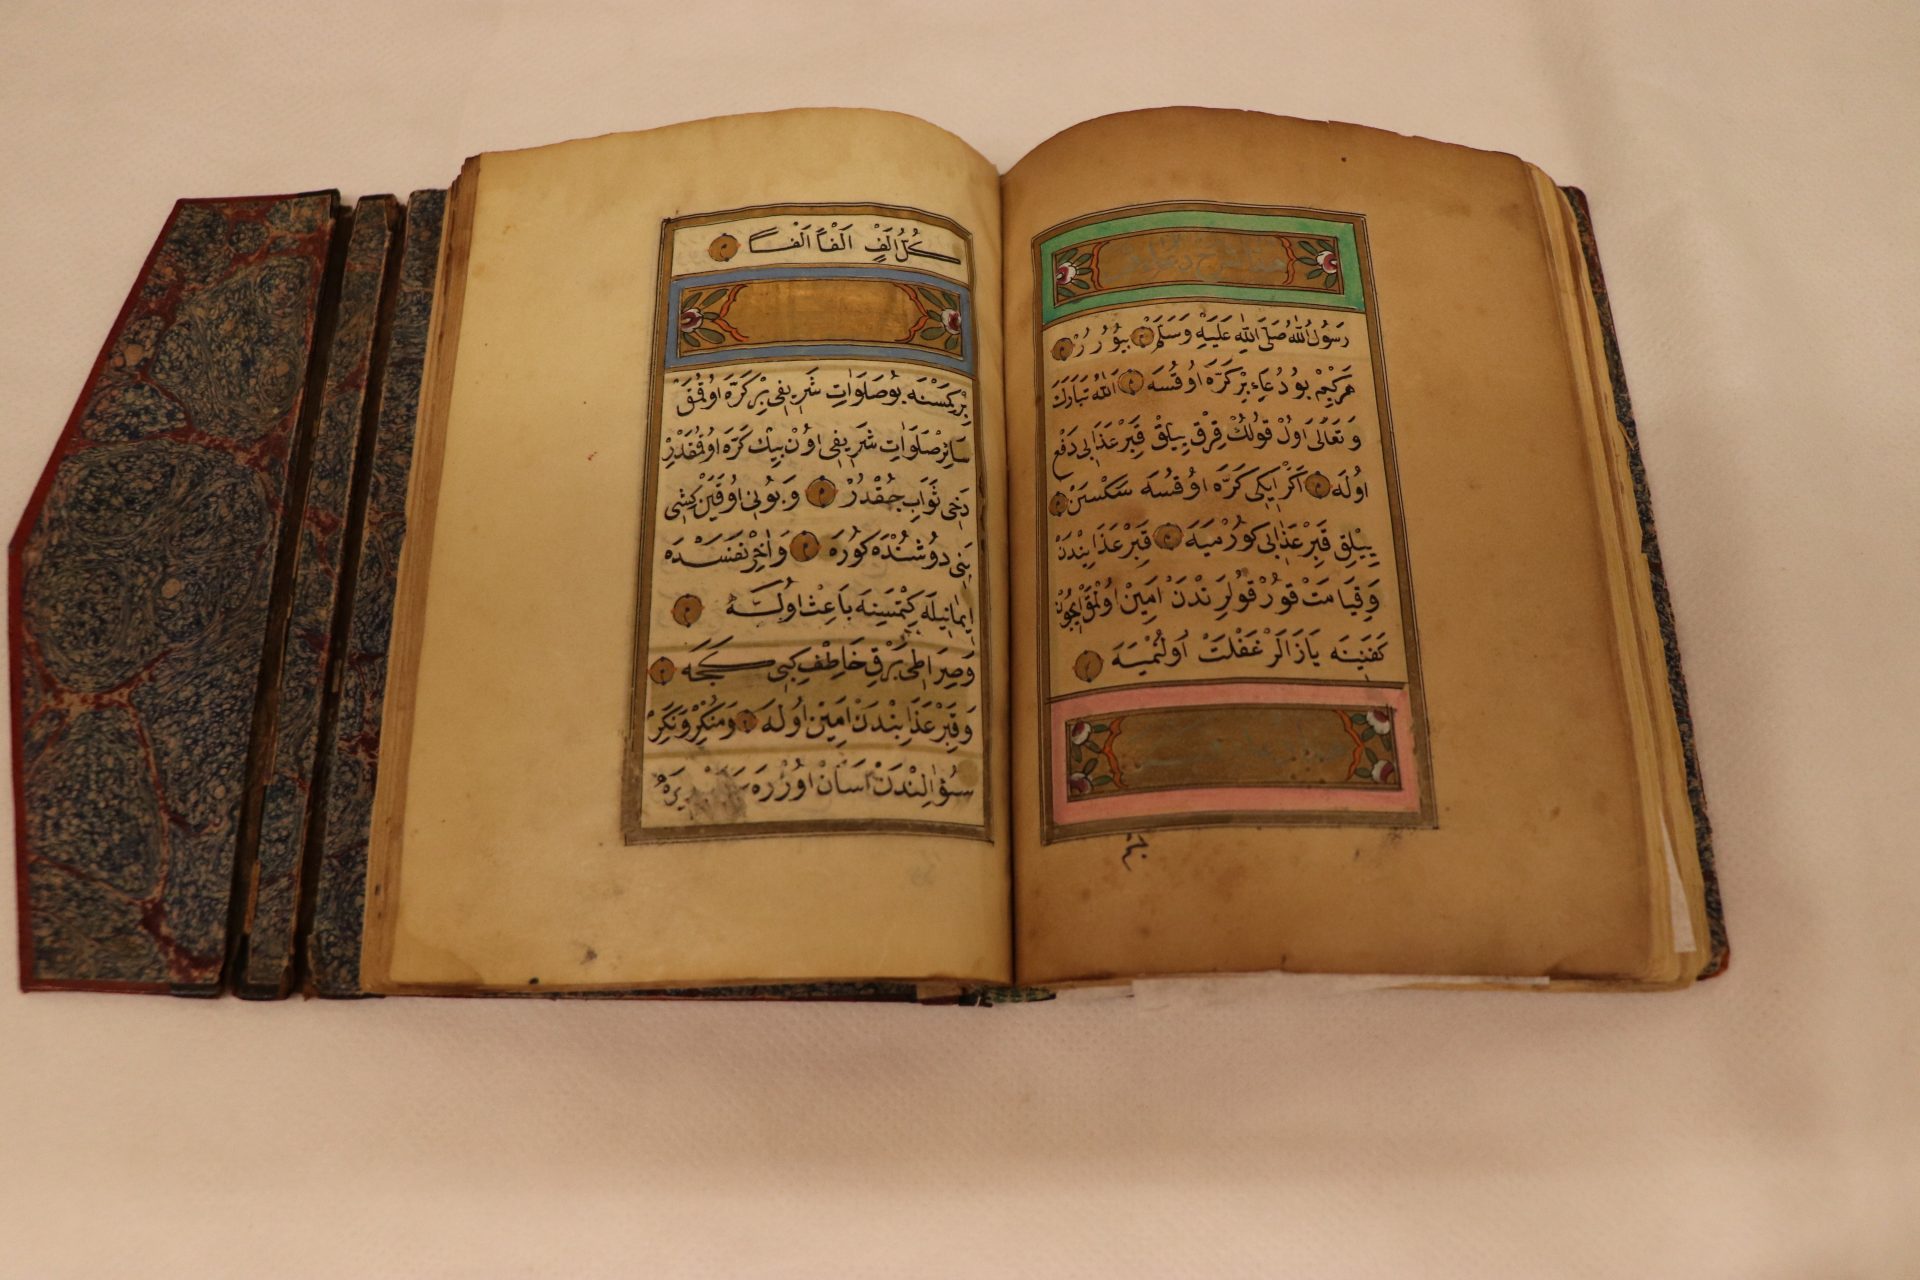 رَسُولُ اللّٰهُ صَلَّى اللّٰهِ عَلَيْهِ وَسَلَّمْ بُيُورُرْ
هَرْكِيمْ بُو دُعَاءِ بِرْ كَرَّهْ اوُقُسَهْ اَللّٰهُ تَبَارَكَ
وَ تَعَالَى اَوُلْ قوُلُكْ قِرْقْ يِيلِقْ قَبِرْ عَذَابِى دَفْعِ
اوُلَهْ اَكَرْ اِيكِى كَرَّهْ اوُقُسَهْ سَكْسَنْ
يِيْلِقِ قَبِرْ عَذَابِى كورْمِيَهْ قَبِرْ عَذَابِنْدَنْ
وَقِيَامَتْ قوُرْقوُلَرِنْدَنْ اَمِينْ اوُلْمَقْ اِيچُونْ
كَفَنِينَهْ يَازَالَرْ غَفْلَتْ اوُلُنْمِيَهْ
كُلُّ اَلْفٍ اَلْفاً اَلْفاً
بِرْ كِمَسْنَهْ بُو صَلَوَاتِ شَرِيفِى بِرْ كَرَّهْ اوُقُمَقْ
سَائِرْ صَلَوَاتِ شَرِيفِى اوُنْ بِيكْ كَرَّهْ اوُقُمَقْدُرْ
دَخِى ثَوَابِ چُقْدُرْ وَبُونِى اوُقَيَنْ كِشِى
بَنِى دوُشُنْدَهْ كوُرَهْ وَاٰخِرْ نَفَسَنْدَهْ
اِيمَانِيلَهْ كِتْمَسِينَهْ بَاعِثْ اوُلَهْ
وَصِرَاطِى بَرْقِ خَاطِفْ كِبِى كَچَهْ
وَقَبِرْ عَذَابِنْدَنْ اَمِينْ اوُلَهْ وَمُنْكِرْ وَنَكِيرْ
سُؤَالِنْدَنْ اَسَانْ اوُزْرَهْ